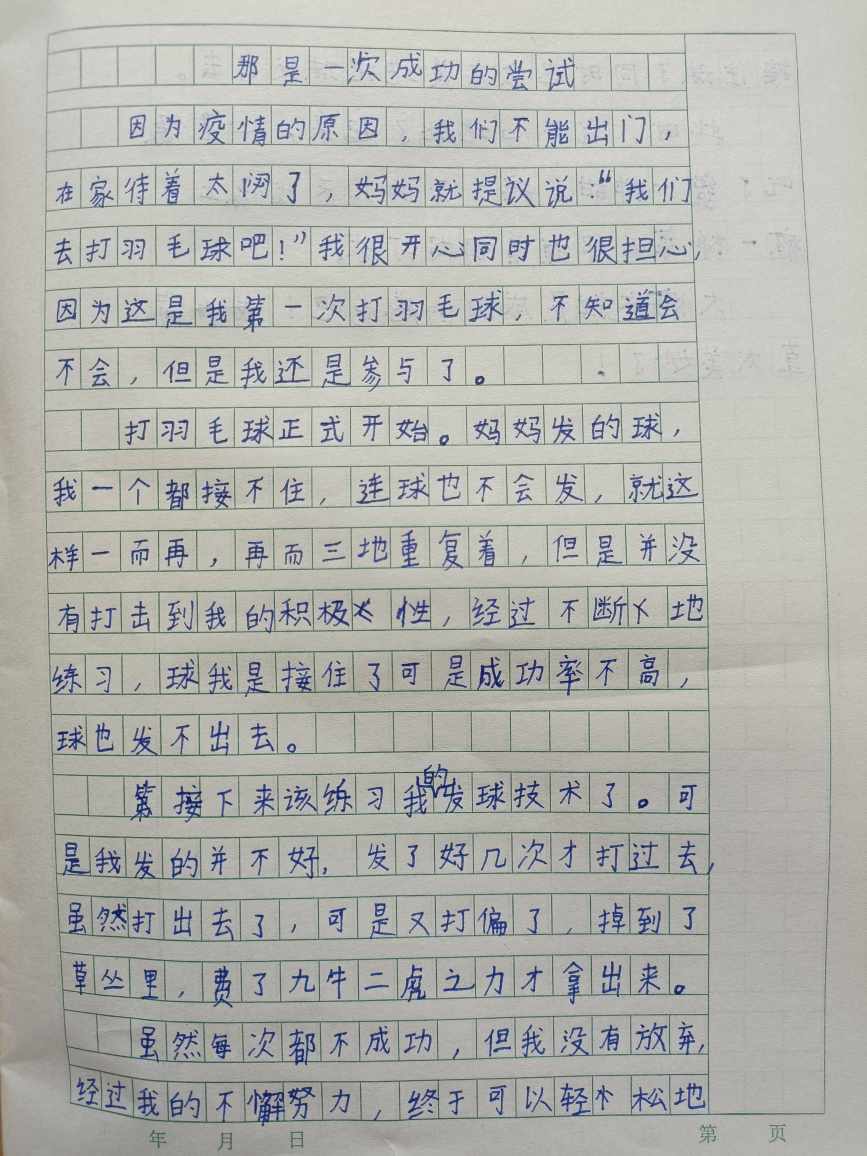 那是一次成功的尝试
因为疫情的原因，我们不能出门，
在家待着太闷了，妈妈就提议说：“我们
去打羽毛球吧！”我很开心同时也很担心，
因为这是我第一次打羽毛球，不知道会
不会，但是我还是参与了。
打羽毛球正式开始。妈妈发的球，
我一个都接不住，连球也不会发，就这
样一而再，再而三地重复着，但是并没
有打击到我的积极性，经过不断地
练习，球我是接住了可是成功率不高，
球也发不出去。
接下来该练习我的发球技术了。可
是我发的并不好，发了好几次才打过去，
虽然打出去了，可是又打偏了，掉到了
草丛里，费了九牛二虎之力才拿出来。
虽然每次都不成功，但我没有放弃，
经过我的不懈努力，终于可以轻松地
年 月 日 第 页